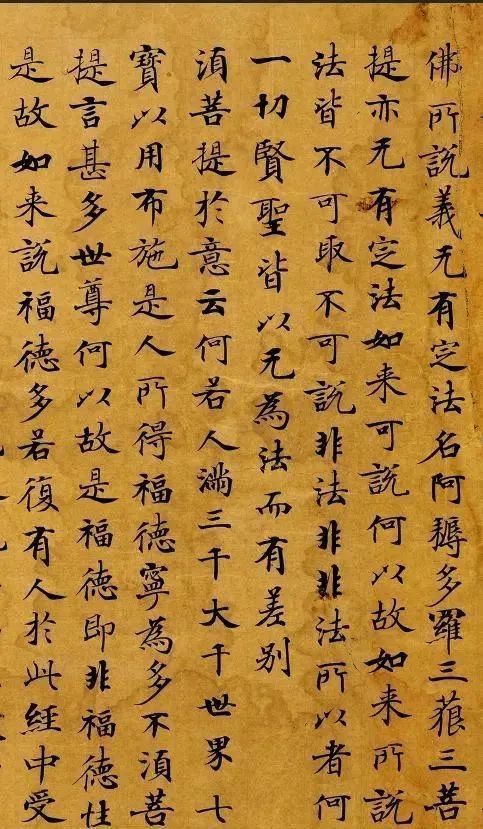 佛所說義无有定法名阿耨多羅三藐三菩
提亦无有定法如来可說何以故如来所說
法皆不可取不可說非法非非法所以者何
一切賢聖皆以无為法而有差别
湏菩提於意云何若人滿三千大千世界七
寶以用布施是人所得福德寧為多不湏菩
提言甚多世尊何以故是福德即非福德性
是故如来說福德多若復有人於此經中受